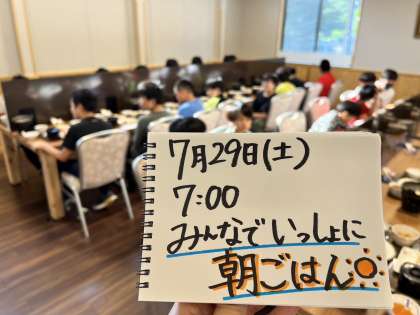 7月29日(土)
7:00
みんなでいっしょに
朝ごはん